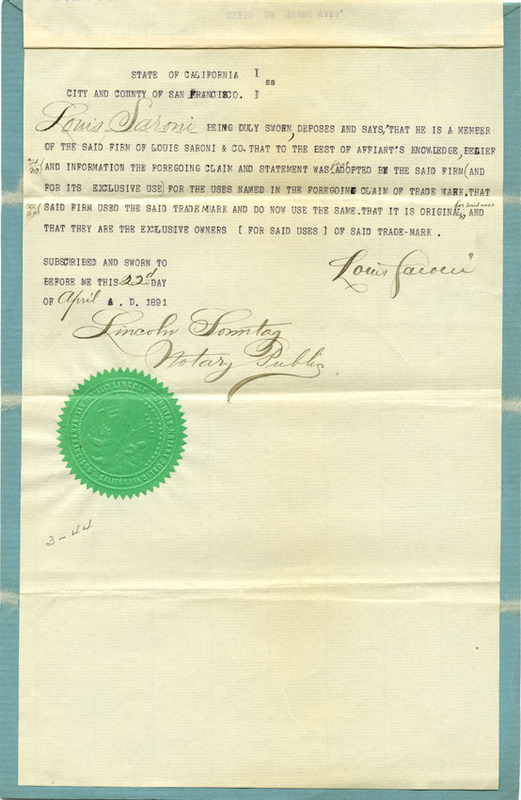 STATE OF CALIFORNIA I
ss
CITY AND COUNTY OF SAN FRANCISCO. I
Louis Saroni BEING DULY SWORN, DEPOSES AND SAYS, THAT HE IS A MEMBER
OF THE SAID FIRM OF LOUIS SARONI & CO. THAT TO THE BEST OF AFFIANT'S KNOWLEDGE, BELIEF
AND INFORMATION THE FOREGOING CLAIM AND STATEMENT WAS first ADOPTED BY THE SAID FIRM (AND
FOR ITS EXCLUSIVE USE) FOR THE USES NAMED IN THE FOREGOING CLAIM OF TRADE MARK. THAT
SAID FIRM USED THE SAID TRADE MARK AND DO NOW USE THE SAME. THAT IT IS ORIGINAL, for said uses AND
THAT THEY ARE THE EXCLUSIVE OWNERS [ FOR SAID USES ] OF SAID TRADE-MARK .
SUBSCRIBED AND SWORN TO
BEFORE ME THIS 22d DAY
OF April A . D. 1891
Louis Saroni
Lincoln Sonntag
Notary Public.
3-44